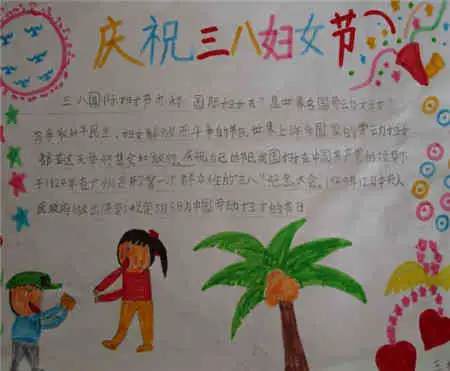 庆祝三八妇女节
三八国际妇女节也称"国际妇女"是世界各国劳动妇女
争取和平民主,妇女解放而斗争的节日世界上许多国家的劳动妇女
都在这天举行集会和 庆祝自己的节日我国妇女在中国共产党的领导下
于1924年在广州召开了第一次 的"三八"纪念大会。1949年12月中央人
民政府做出决定:规定3月8日为中国劳动妇女的节日
三